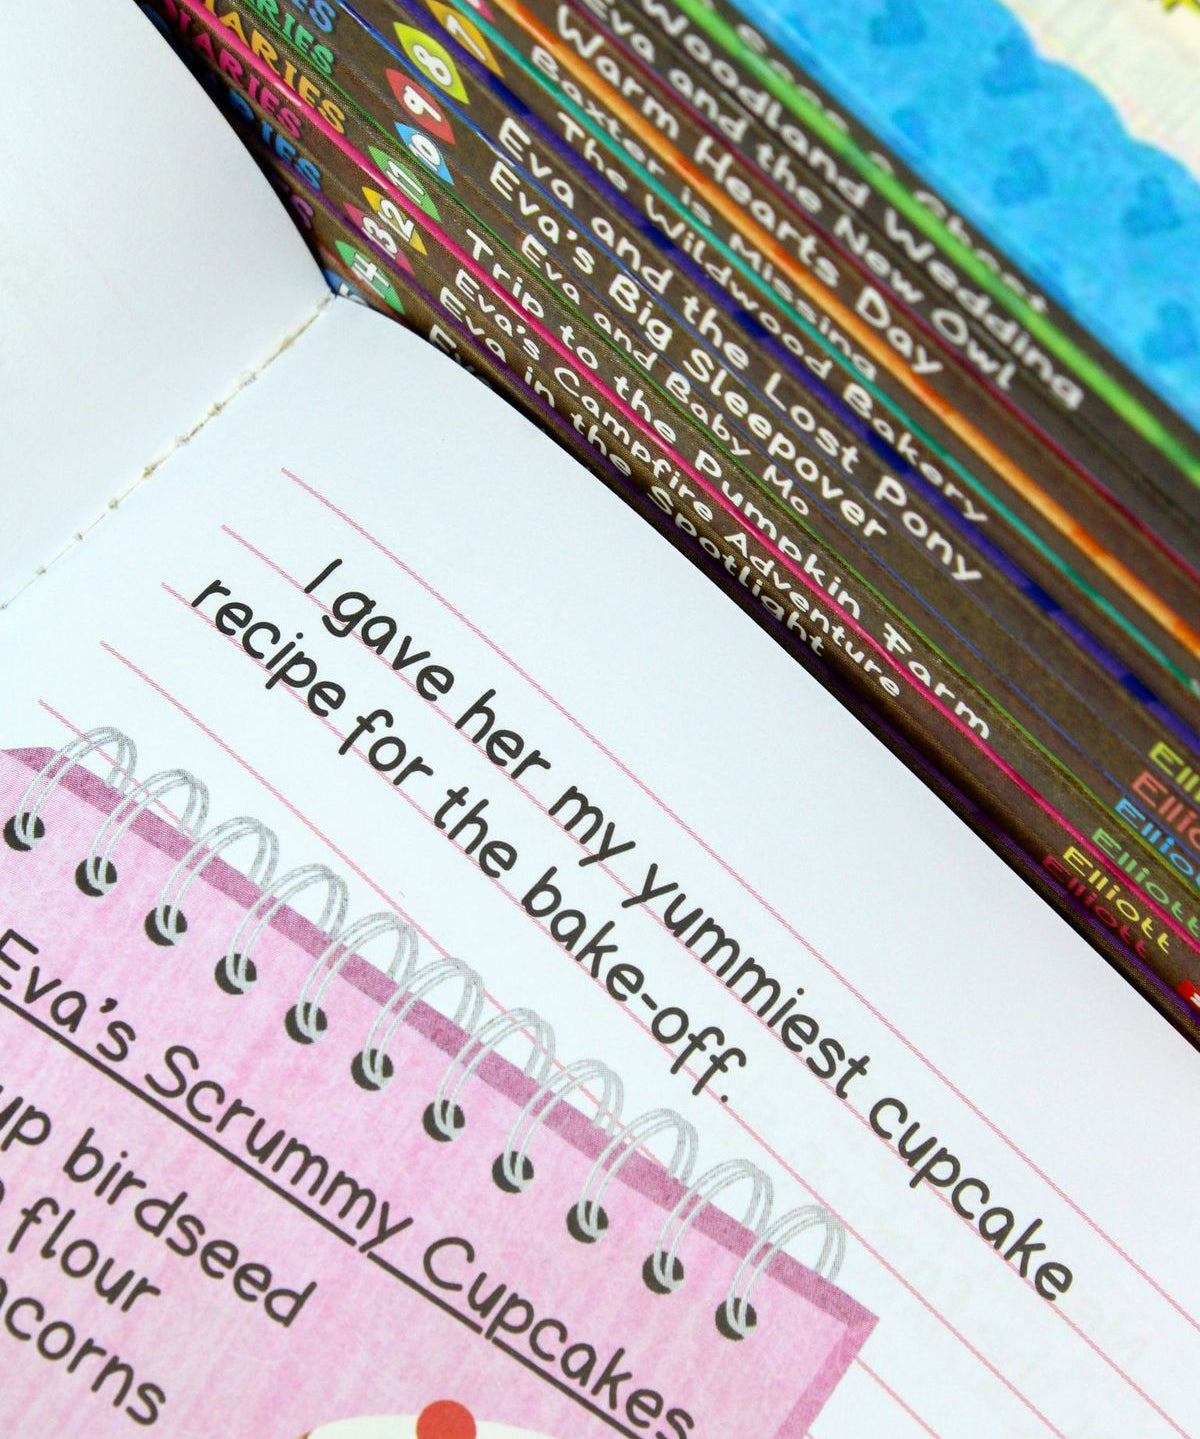 Eva Sees a Ghost
Woodland Wedding
Eva and the New Owl
Warm Hearts Day
Baxter is Missing
The Wildwood Bakery
Eva and the Lost Pony
Eva's Big Sleepover
Eva and Baby Mo
Trip to the Pumpkin Farm
Eva's Campfire Adventure
Eva in the Spotlight
7
8
9
10
11
12
13
14
15
DIARIES
DIARIES
DIARIES
Elliott
Elliott
Elliott
Elliott
I gave her my yummiest cupcake
recipe for the bake-off.
Eva's Scrummy Cupcakes
birdseed
flour
acorns